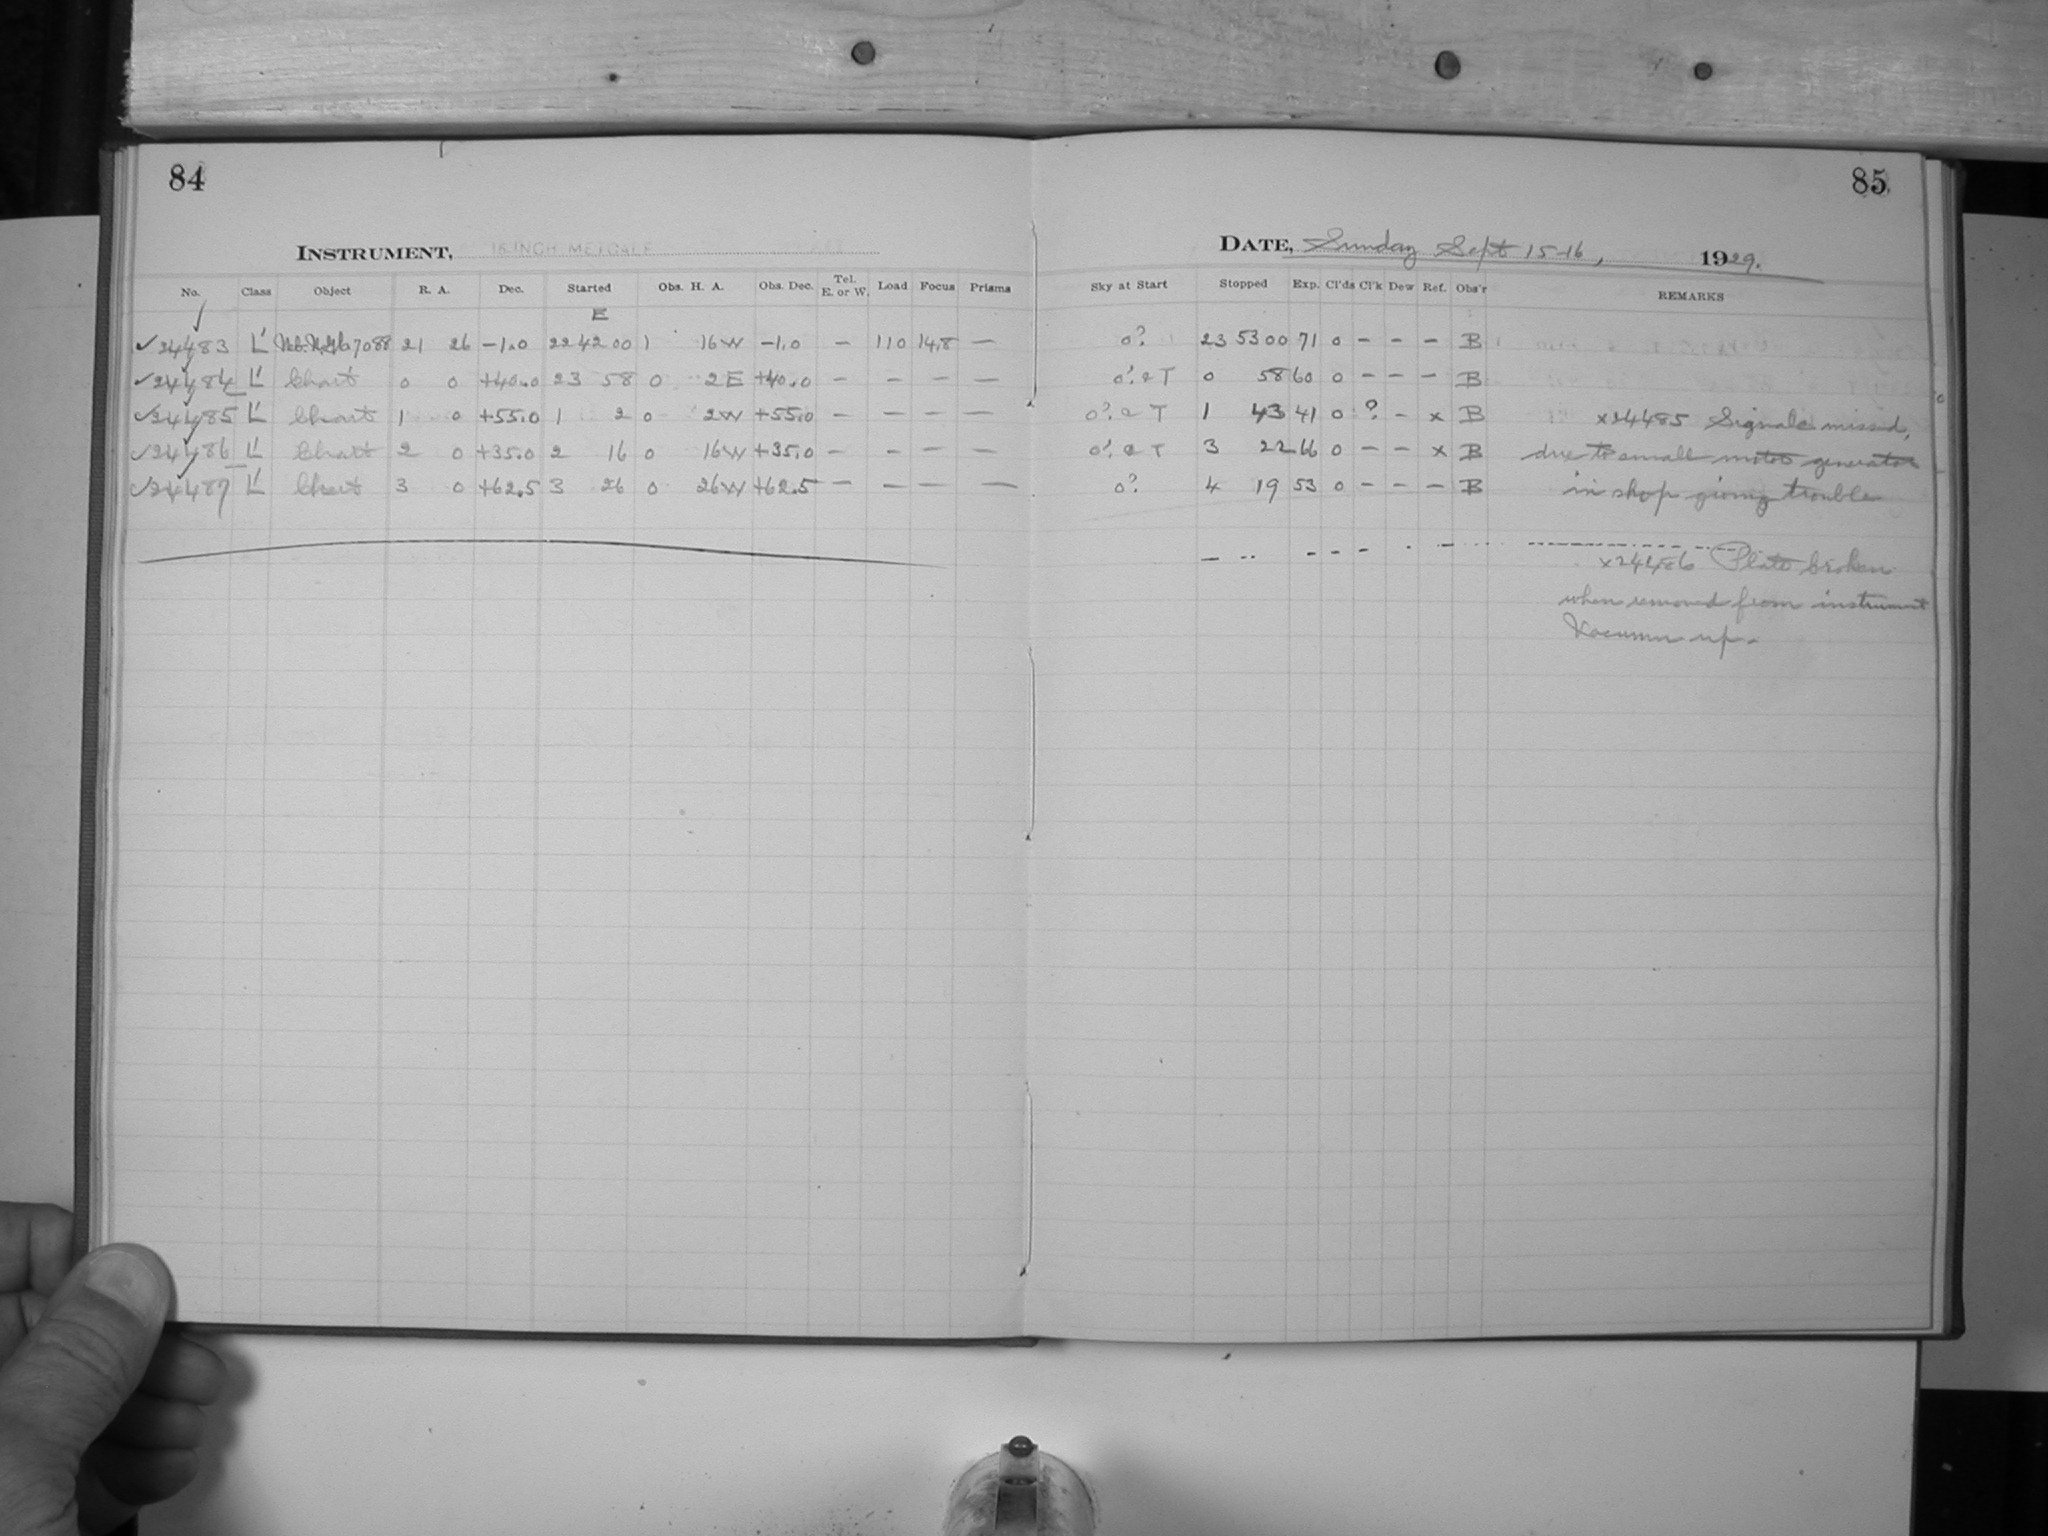 84
85
INSTRUMENT, 16 INCH METCALF
DATE, Sunday Sept 15-16, 1929.
No. Class Object R. A. Dec. Started Obs. H. A. Obs. Dec. Tel. E. or W. Load Focus Prisms Sky at Start Stopped Exp. Cl'ds Cl'k Dew Ref. Obs'r REMARKS
E
✓24483 L' 7088 21 26 -1.0 22 42 00 1 16W -1.0 - 110 14.8 - 0? 23 53 00 71 0 - - - B
✓24484 L' Chart 0 0 +40.0 23 58 0 2E +40.0 - - - - 0? a T 0 58 60 0 - - - B
✓24485 L' Chart 1 0 +55.0 1 2 0 2W +55.0 - - - - 0? a T 1 43 41 0 ? - x B x24485 Signals missed,
✓24486 L' Chart 2 0 +35.0 2 16 0 16W +35.0 - - - - 0? a T 3 22 66 0 - - x B due to small motor generator
✓24487 L' Chart 3 0 +62.5 3 26 0 26W +62.5 - - - - 0? 4 19 53 0 - - - B in shop giving trouble
x24486 Plate broken
when removed from instrument
Vacuum up.